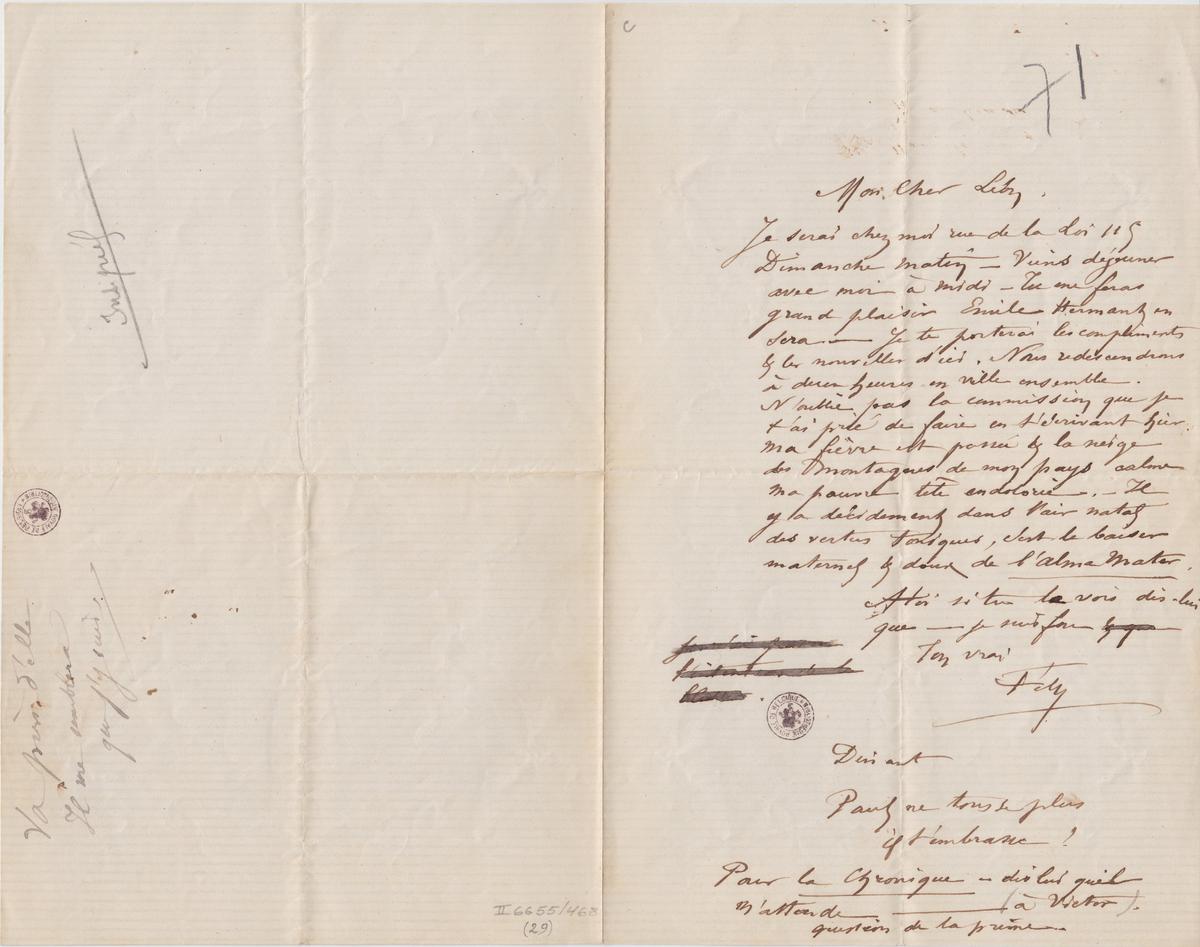 71
Mon Cher Léon.
Je serai chez moi rue de la Loi 115
Dimanche matin — Viens déjeuner
avec moi à midi — Tu me feras
grand plaisir Emile Hermant en
sera — Je te porterai les compliments
& les nouvelles d'ici. Nous redescendrons
à deux heures en ville ensemble.
N'oublie pas la commission que je
t'ai prié de faire en t'écrivant hier.
ma fièvre est passée & la neige
des montagnes de mon pays calme
ma pauvre tête endolorie. — Il
y a décidement dans l'air natal
des vertus toniques, c'est le baiser
maternel & doux de l'alma Mater.
si tu la vois dis-lui
que — je suis fou
Ton vrai
Fély
Dinant
Paul ne tousse plus
il t'embrasse !
Pour la Chronique — dis lui qu'il
m'attende (à Victor).
question de la prime
Va près d'elle.
Il me semblera
que j'y suis.
BIBLIOTHEQUE ROYALE DE BELGIQUE
BIBLIOTHEQUE ROYALE DE BELGIQUE
II 6655/468
(29)